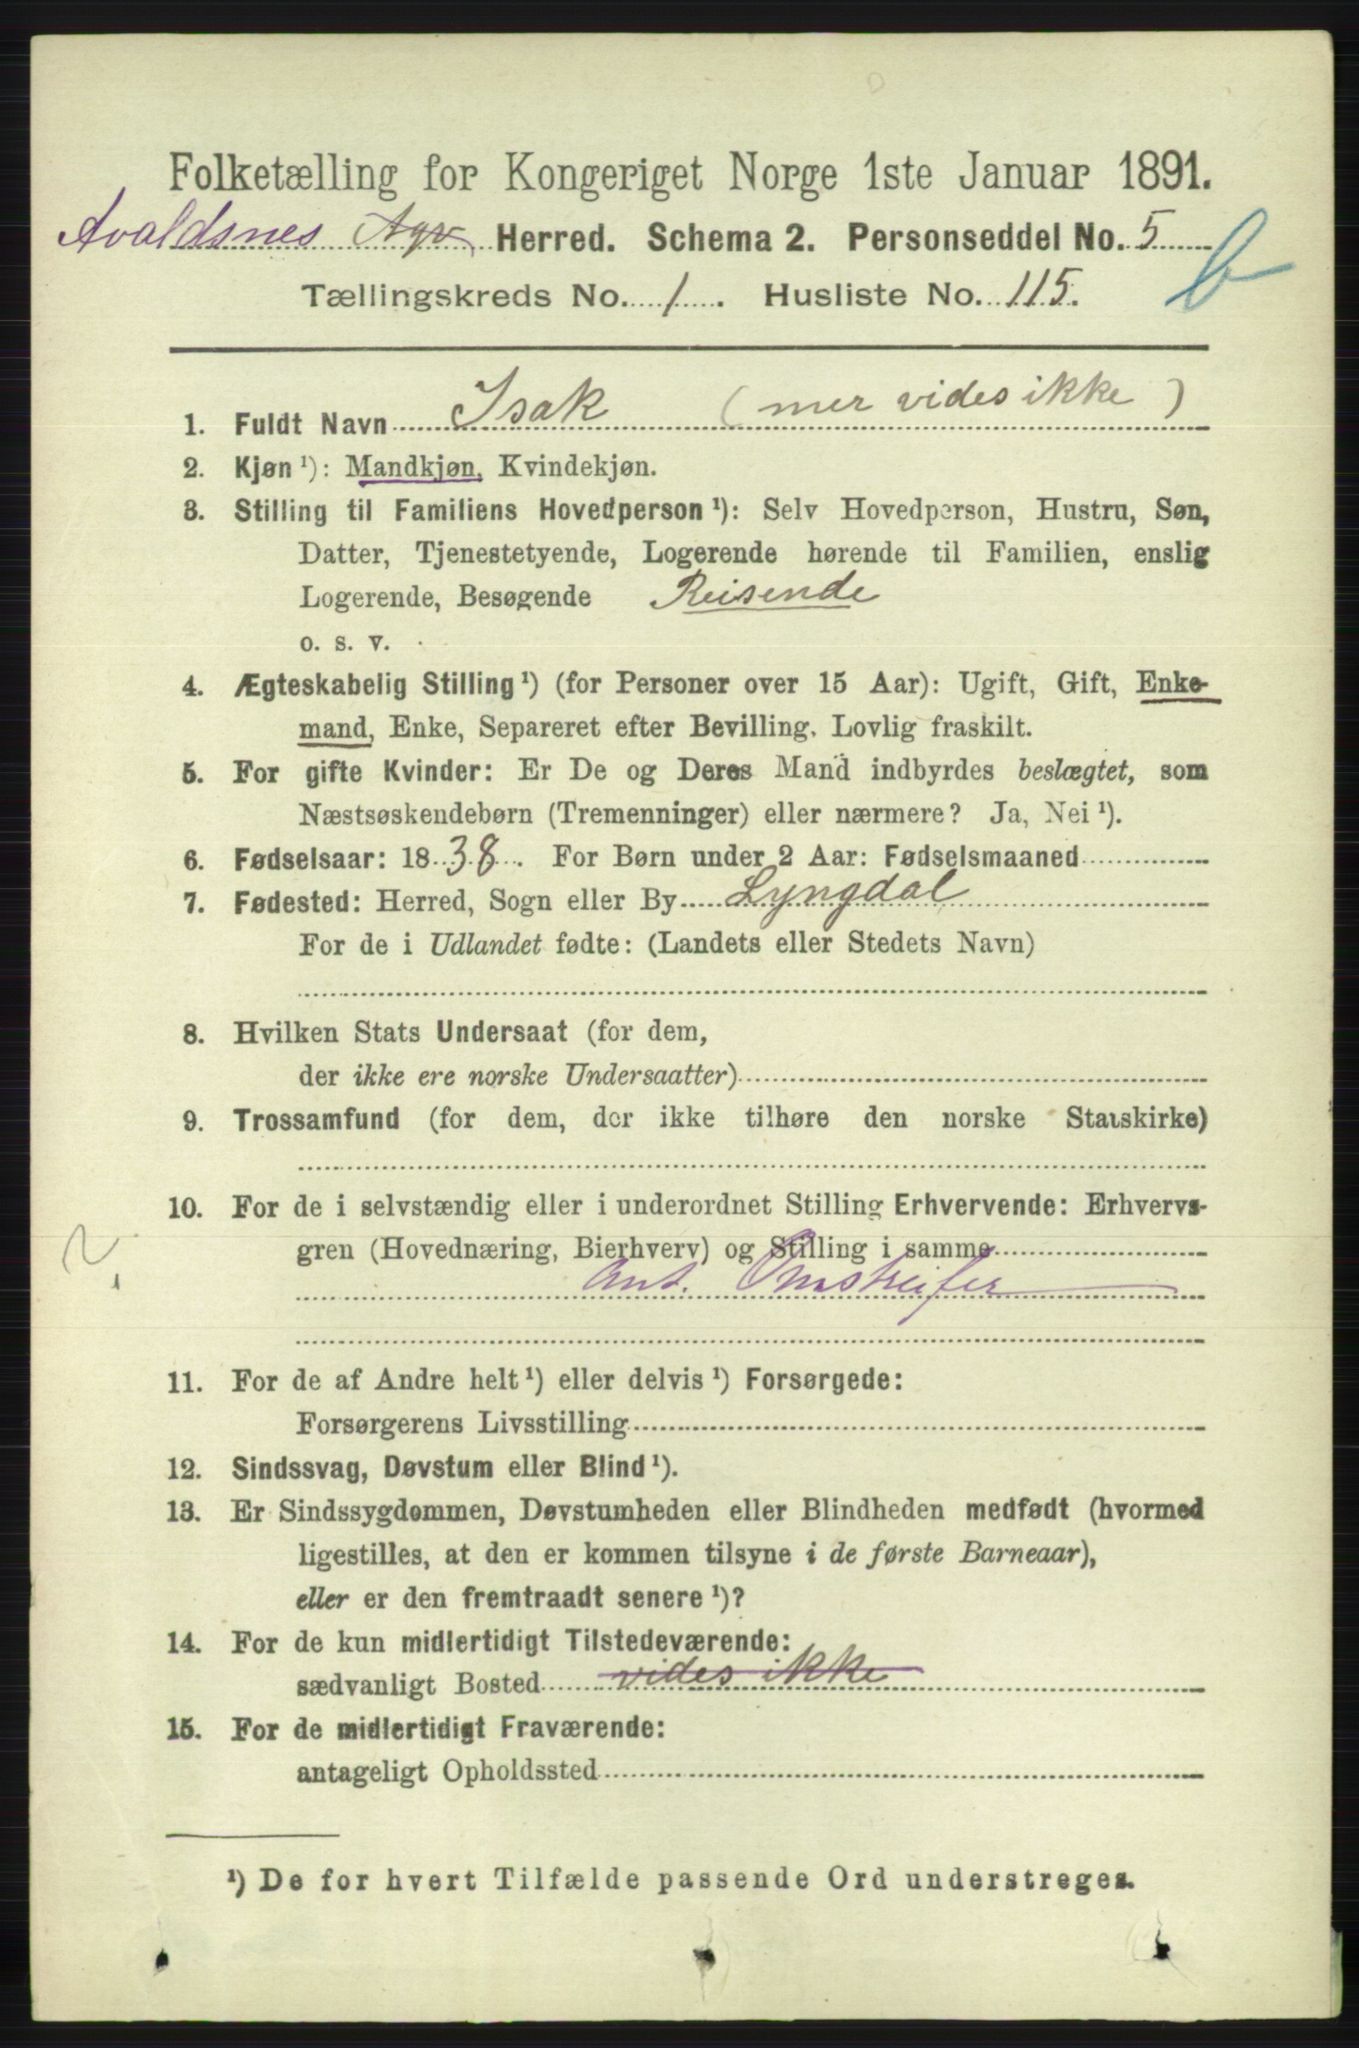 Folketælling for Kongeriget Norge 1ste Januar 1891.
Avaldsnes Herred. Schema 2. Personseddel No. 5
b
Tællingskreds No. 1. Husliste No. 115.
1. Fuldt Navn Isak (mer vides ikke)
2. Kjøn ¹): Mandkjøn, Kvindekjøn.
3. Stilling til Familiens Hovedperson ¹): Selv Hovedperson, Hustru, Søn,
Datter, Tjenestetyende, Logerende hørende til Familien, enslig
Logerende, Besøgende Reisende
o. s. v.
4. Ægteskabelig Stilling ¹) (for Personer over 15 Aar): Ugift, Gift, Enke-
mand, Enke, Separeret efter Bevilling. Lovlig fraskilt.
5. For gifte Kvinder: Er De og Deres Mand indbyrdes beslægtet, som
Næstsøskendebørn (Tremenninger) eller nærmere? Ja, Nei ¹).
6. Fødselsaar: 1838. For Børn under 2 Aar: Fødselsmaaned
7. Fødested: Herred, Sogn eller By Lyngdal
For de i Udlandet fødte: (Landets eller Stedets Navn)
8. Hvilken Stats Undersaat (for dem,
der ikke ere norske Undersaatter)
9. Trossamfund (for dem, der ikke tilhøre den norske Statskirke)
10. For de i selvstændig eller i underordnet Stilling Erhvervende: Erhvervs-
gren (Hovednæring, Bierhverv) og Stilling i samme
Ant. Omstreifer
11. For de af Andre helt ¹) eller delvis ¹) Forsørgede:
Forsørgerens Livsstilling
12. Sindssvag, Døvstum eller Blind ¹).
13. Er Sindssygdommen, Døvstumheden eller Blindheden medfødt (hvormed
ligestilles, at den er kommen tilsyne i de første Barneaar),
eller er den fremtraadt senere ¹)?
14. For de kun midlertidigt Tilstedeværende:
sædvanligt Bosted vides ikke
15. For de midlertidigt Fraværende:
antageligt Opholdssted
¹) De for hvert Tilfælde passende Ord understreges.